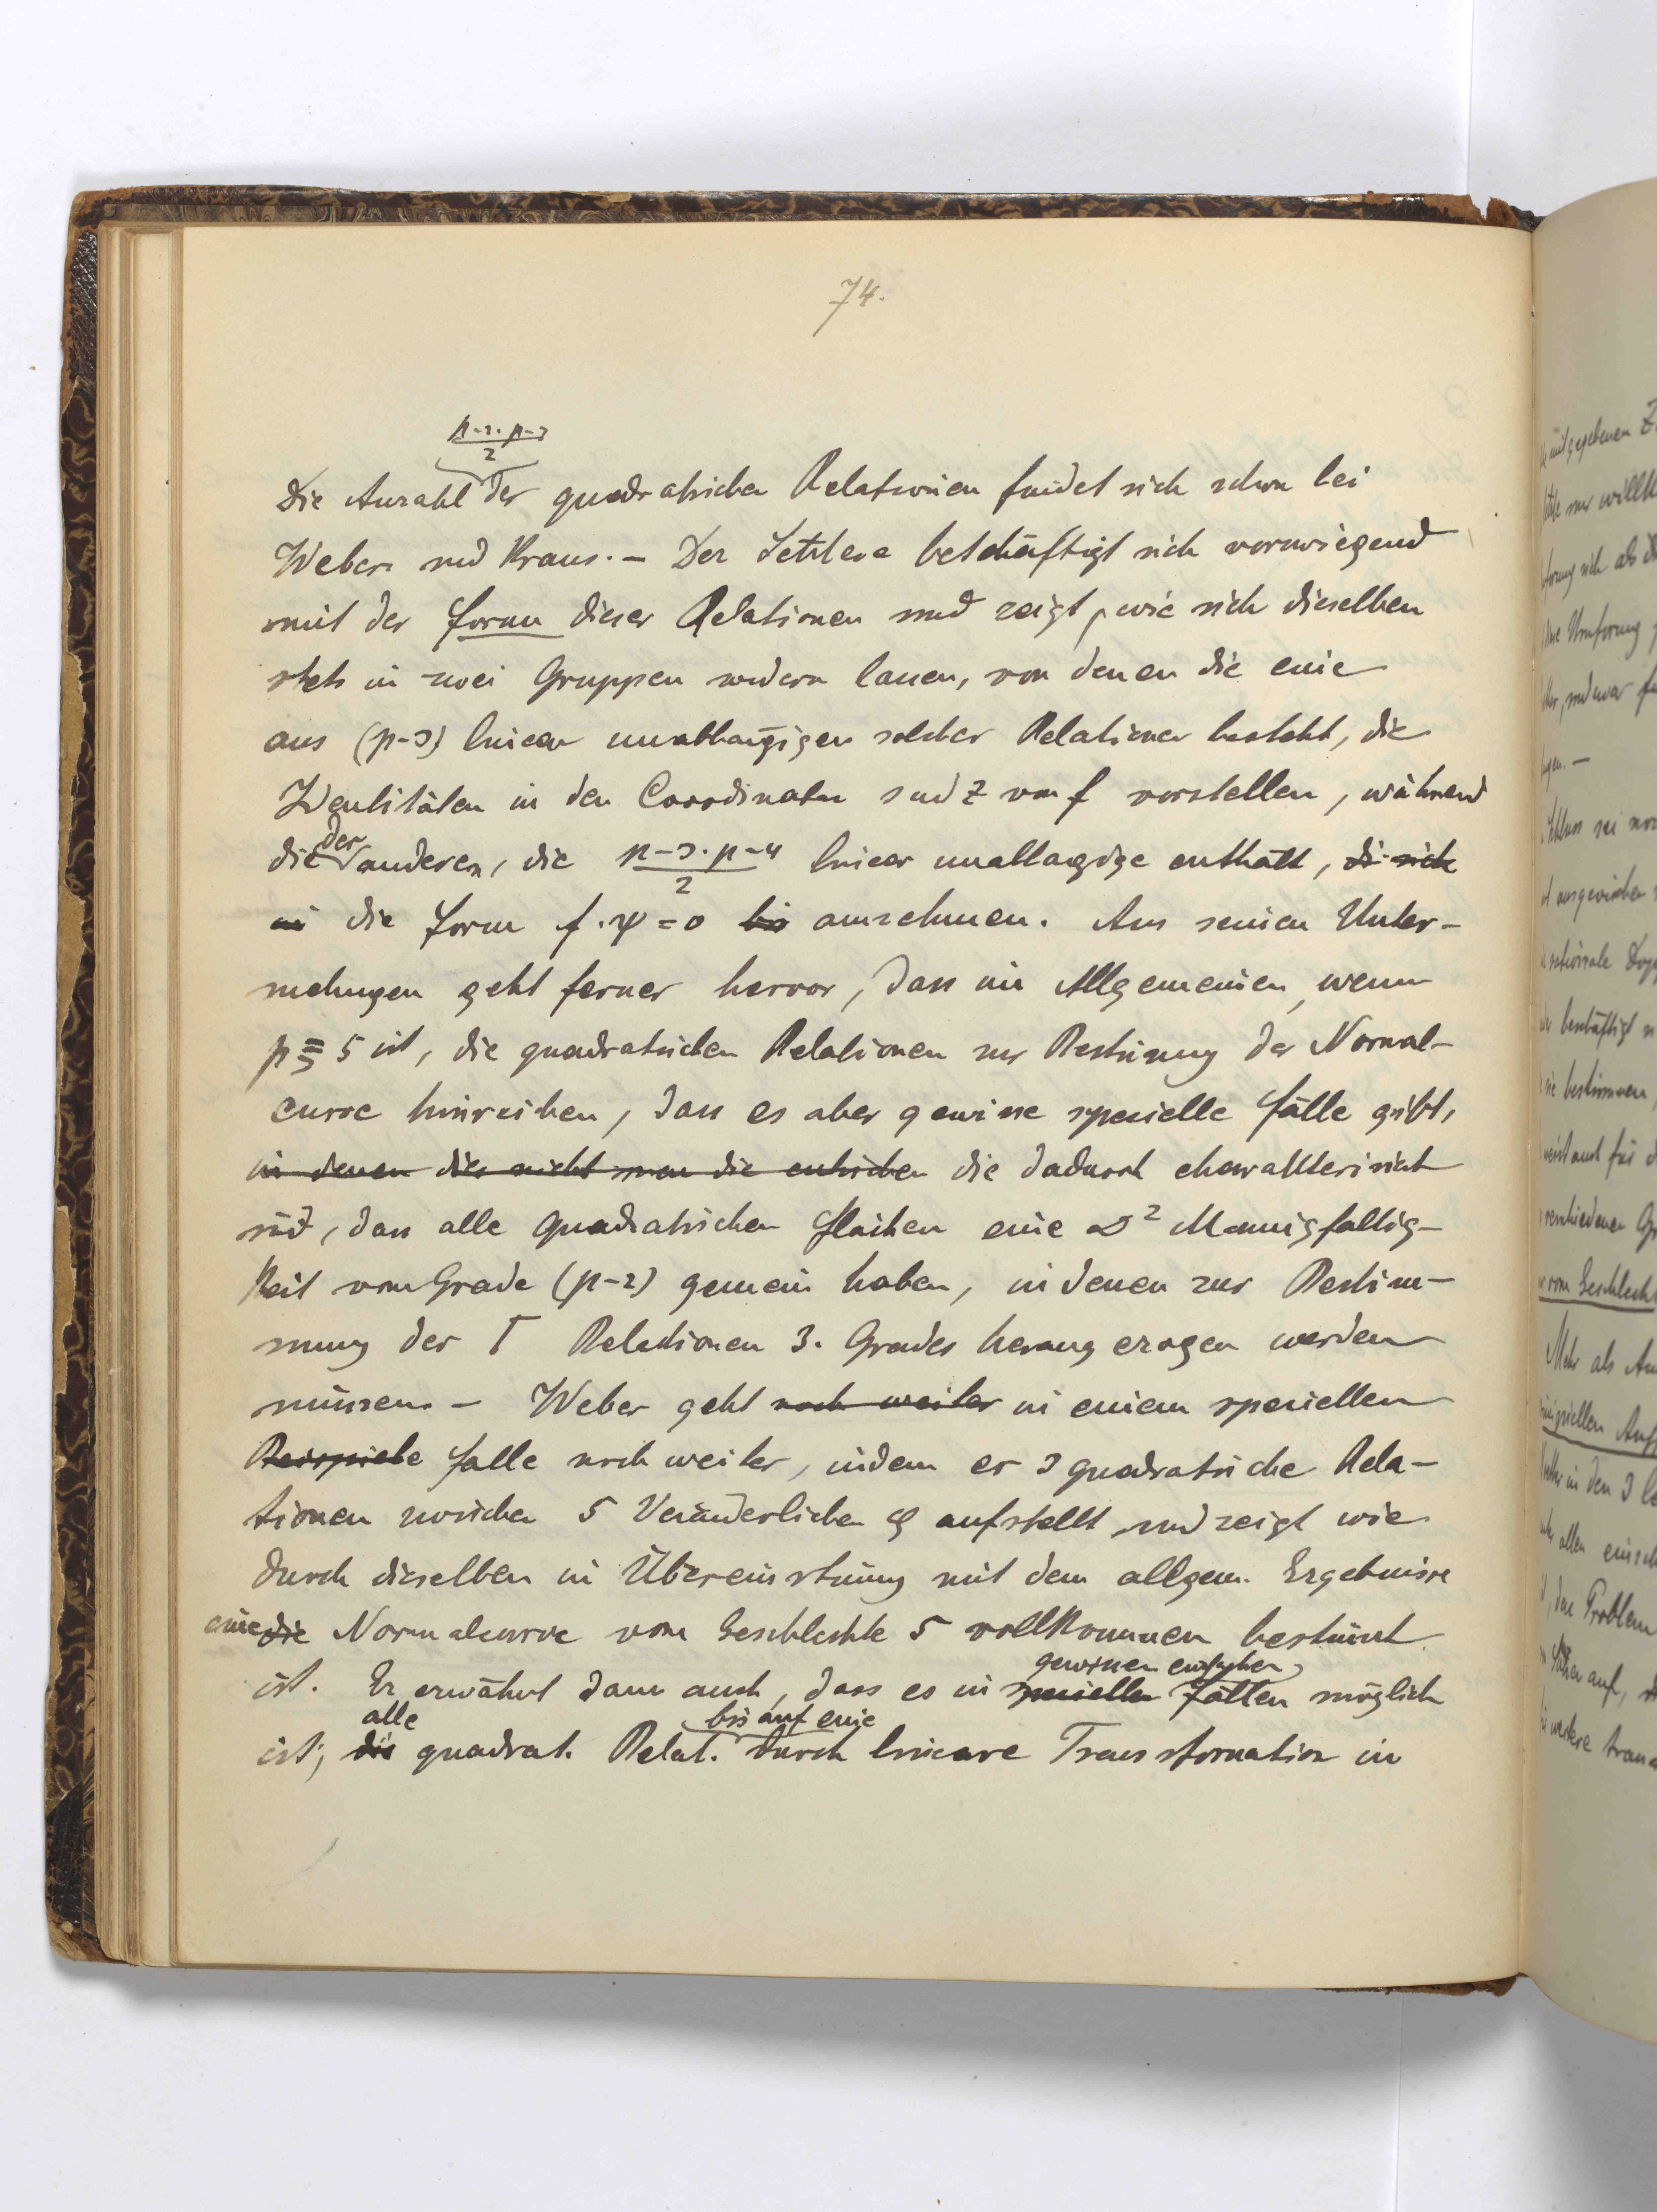 74.
p-2.p-3
2
Die Anzahl der quadratischen Relationen findet sich schon bei
Weber und Kraus. – Der Letztere beschäftigt sich vorwiegend
mit der Form dieser Relationen und zeigt, wie sich dieselben
stets in zwei Gruppen sondern lassen, von denen die eine
aus (p-3) linear unabhängigen solcher Relationen besteht, die
Identitäten in den Coordinaten s und z von f vorstellen, während
die der anderen, die p-3.p-4/2 linear unabhängige enthält, die sich
in die Form f.ψ=0 bis annehmen. Aus seinen Unter-
suchungen geht ferner hervor, dass im Allgemeinen, wenn
p ≧ 5 ist, die quadratischen Relationen zur Bestimung der Normal-
curve hinreichen, dass es aber gewisse spezielle Fälle gibt,
in denen dies nicht man die die dadurch charakterisirt
sind, dass alle quadratischen Flächen eine ∞² Mannigfaltig-
keit vom Grade (p-2) gemein haben, in denen zur Bestim-
mung der Γ Relationen 3. Grades herangezogen werden
müssen. – Weber geht noch weiter in einem speziellen
Beispiele Falle noch weiter, indem er 3 quadratische Rela-
tionen zwischen 5 Veränderlichen φ aufstellt und zeigt wie
durch dieselben in Übereinstimung mit dem allgem. Ergebnisse
eine die Normalcurve vom Geschlechte 5 vollkommen bestimt
gewissen einfachen
ist. Er erwähnt dann auch, dass es in speziellen Fällen möglich
alle bis auf eine
ist, die quadrat. Relat. durch lineare Transformation in